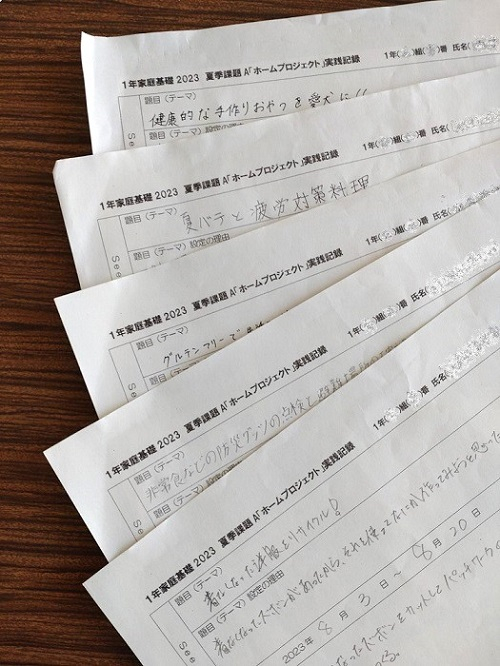 1年家庭基礎2023 夏季課題A「ホームプロジェクト」実践記録 1年( )組( )番 氏名(
題目(テーマ)
健康的な手作りおやつを愛犬に!!
題目(テーマ)設定の理由
See
1年家庭基礎2023 夏季課題A「ホームプロジェクト」実践記録 1年( )組( )番 氏名(
題目(テーマ)
夏バテと疲労対策料理
題目(テーマ)設定の理由
See
1年家庭基礎2023 夏季課題A「ホームプロジェクト」実践記録 1年( )組( )番 氏名(
題目(テーマ)
グルテンフリーで
題目(テーマ)設定の理由
See
1年家庭基礎2023 夏季課題A「ホームプロジェクト」実践記録 1年( )組( )番 氏名(
題目(テーマ)
非常食などの防災グッズの点検と
題目(テーマ)設定の理由
See
1年家庭基礎2023 夏季課題A「ホームプロジェクト」実践記録 1年( )組( )番 氏名(
題目(テーマ)
着なくなった洋服をリサイクル!
題目(テーマ)設定の理由
着なくなったズボンがあったから、それを使ってなにか作ってみようと思った
2023年 8月 3日 ~ 8月 20日
なったズボンをカットしてパッチワークの
See